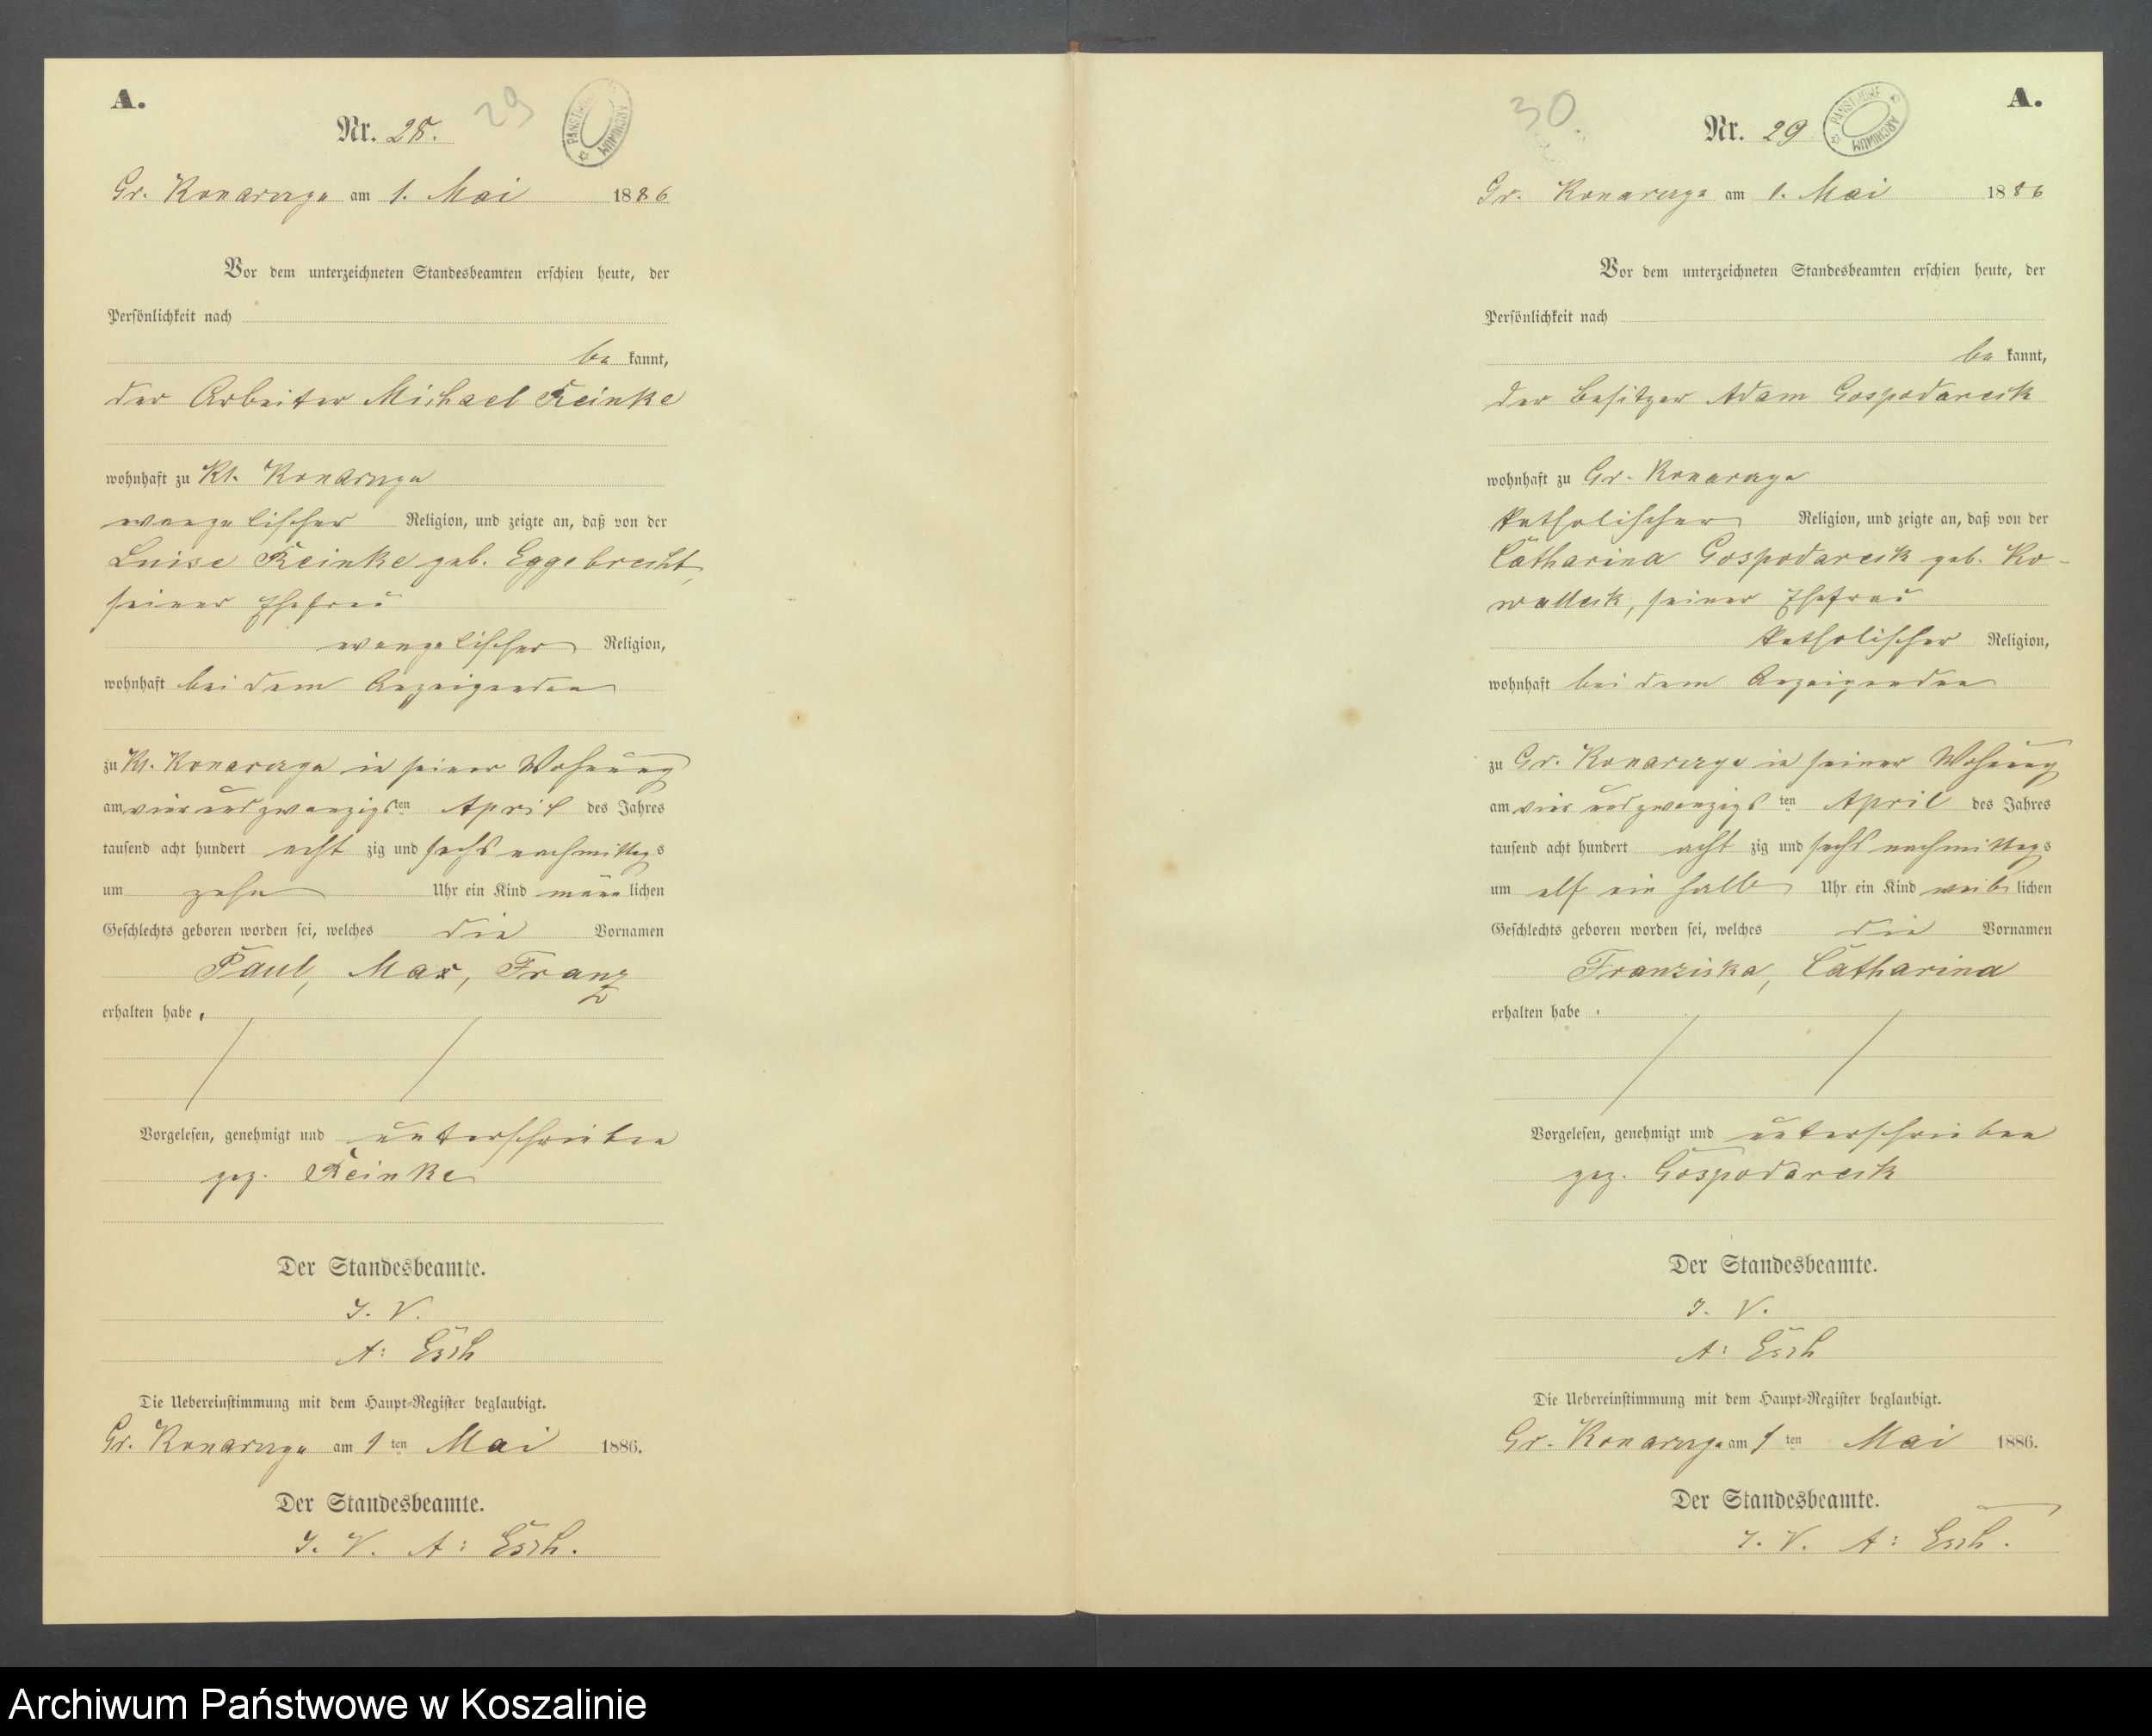 A.
Nr. 28.
29
PANSTWOWE ARCHIWUM
Gr. Konarczyn am 1. Mai 1886
Vor dem unterzeichneten Standesbeamten erschien heute, der
Persönlichkeit nach
be kannt,
der Arbeiter Michael Reinke
wohnhaft zu Kl. Konarczyn
evangelischer Religion, und zeigte an, daß von der
Luise Reinke geb. Eggebrecht,
seiner Ehefrau
evangelischer Religion,
wohnhaft bei dem Anzeigenden
zu Kl. Konarczyn in seiner Wohnung
am vier und zwanzigsten April des Jahres
tausend acht hundert acht zig und sechs nachmittags
um zehn Uhr ein Kind männ lichen
Geschlechts geboren worden sei, welches die Vornamen
Paul, Max, Franz
erhalten habe.
Vorgelesen, genehmigt und unterschrieben
gez. Reinke
Der Standesbeamte.
I. V.
A: Esch
Die Uebereinstimmung mit dem Haupt-Register beglaubigt.
Gr. Konarczyn am 1 ten Mai 1886.
Der Standesbeamte.
I. V. A: Esch.
A.
30.
Nr. 29
PANSTWOWE ARCHIWUM
Gr. Konarczyn am 1. Mai 1886
Vor dem unterzeichneten Standesbeamten erschien heute, der
Persönlichkeit nach
be kannt,
der Besitzer Adam Gospodareck
wohnhaft zu Gr. Konarczyn
katholischer Religion, und zeigte an, daß von der
Catharina Gospodareck geb. Ko-
walleck, seiner Ehefrau
katholischer Religion,
wohnhaft bei dem Anzeigenden
zu Gr. Konarczyn in seiner Wohnung
am vier und zwanzigs ten April des Jahres
tausend acht hundert acht zig und sechs nachmittags
um elf ein halb Uhr ein Kind weib lichen
Geschlechts geboren worden sei, welches die Vornamen
Franziska, Catharina
erhalten habe.
Vorgelesen, genehmigt und unterschrieben
gez. Gospodareck
Der Standesbeamte.
I. V.
A: Esch
Die Uebereinstimmung mit dem Haupt-Register beglaubigt.
Gr. Konarczyn am 1 ten Mai 1886.
Der Standesbeamte.
I. V. A: Esch.
Archiwum Państwowe w Koszalinie